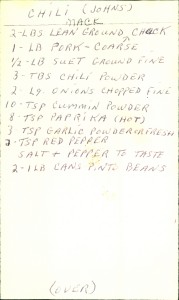 CHILI (JOHNS)
MACK
2-LBS LEAN GROUND CHUCK
1-LB PORK-COARSE
1/2-LB SUET GROUND FINE
3-TBS CHILI POWDER
2-LG. ONIONS CHOPPED FINE
10-TSP CUMMIN POWDER
8-TSP PAPRIKA (HOT)
3 TSP GARLIC POWDER OR FRESH
2-TSP RED PEPPER
SALT + PEPPER TO TASTE
2-1LB CANS PINTO BEANS
(OVER)